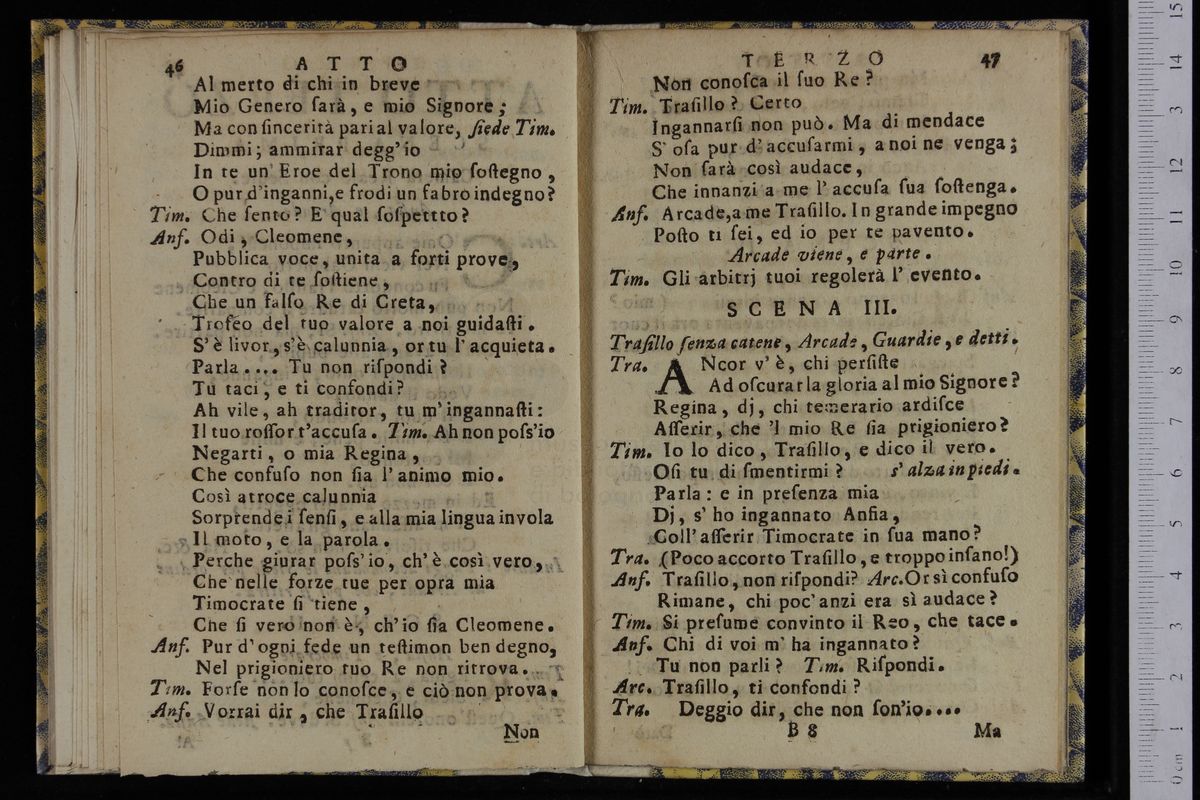 46 ATTO
Al merto di chi in breve
Mio Genero ſarà, e mio Signore;
Ma con ſincerità pari al valore, ſiede Tim.
Dimmi; ammirar degg'io
In te un' Eroe del Trono mio ſoſtegno,
O pur d'inganni, e frodi un fabro indegno?
Tim. Che ſento? E qual ſoſpettto?
Anf. Odi, Cleomene,
Pubblica voce, unita a forti prove,
Contro di te ſoſtiene,
Che un falſo Re di Creta,
Trofeo del tuo valore a noi guidaſti.
S'è livor, s'è calunnia, or tu l'acquieta.
Parla.... Tu non riſpondi?
Tu taci, e ti confondi?
Ah vile, ah traditor, tu m'ingannaſti:
Il tuo roſſor t'accuſa. Tim. Ah non poſs'io
Negarti, o mia Regina,
Che confuſo non ſia l'animo mio.
Così atroce calunnia
Sorprende i ſenſi, e alla mia lingua invola
Il moto, e la parola.
Perche giurar poſs'io, ch'è così vero,
Che nelle forze tue per opra mia
Timocrate ſi tiene,
Che ſi vero non è, ch'io ſia Cleomene.
Anf. Pur d'ogni fede un teſtimon ben degno,
Nel prigioniero tuo Re non ritrova.
Tim. Forſe non lo conoſce, e ciò non prova.
Anf. Vorrai dir, che Traſillo
Non
TERZO 47
Non conoſca il ſuo Re?
Tim. Traſillo? Certo
Ingannarſi non può. Ma di mendace
S' oſa pur d'accuſarmi, a noi ne venga;
Non ſarà così audace,
Che innanzi a me l'accuſa ſua ſoſtenga.
Anf. Arcade, a me Traſillo. In grande impegno
Poſto ti ſei, ed io per te pavento.
Arcade viene, e parte.
Tim. Gli arbitrj tuoi regolerà l'evento.
SCENA III.
Traſillo ſenza catene, Arcade, Guardie, e detti.
Tra. ANcor v'è, chi perſiſte
Ad oſcurar la gloria al mio Signore?
Regina, dj, chi temerario ardiſce
Aſſerir, che 'l mio Re ſia prigioniero?
Tim. Io lo dico, Traſillo, e dico il vero.
Oſi tu di ſmentirmi? s'alza in piedi.
Parla: e in preſenza mia
Dj, s'ho ingannato Anfia,
Coll'aſſerir Timocrate in ſua mano?
Tra. (Poco accorto Traſillo, e troppo inſano!)
Anf. Traſillo, non riſpondi? Arc. Or sì confuſo
Rimane, chi poc'anzi era sì audace?
Tim. Si preſume convinto il Reo, che tace.
Anf. Chi di voi m'ha ingannato?
Tu non parli? Tim. Riſpondi.
Arc. Traſillo, ti confondi?
Tra. Deggio dir, che non ſon'io....
B 8 Ma